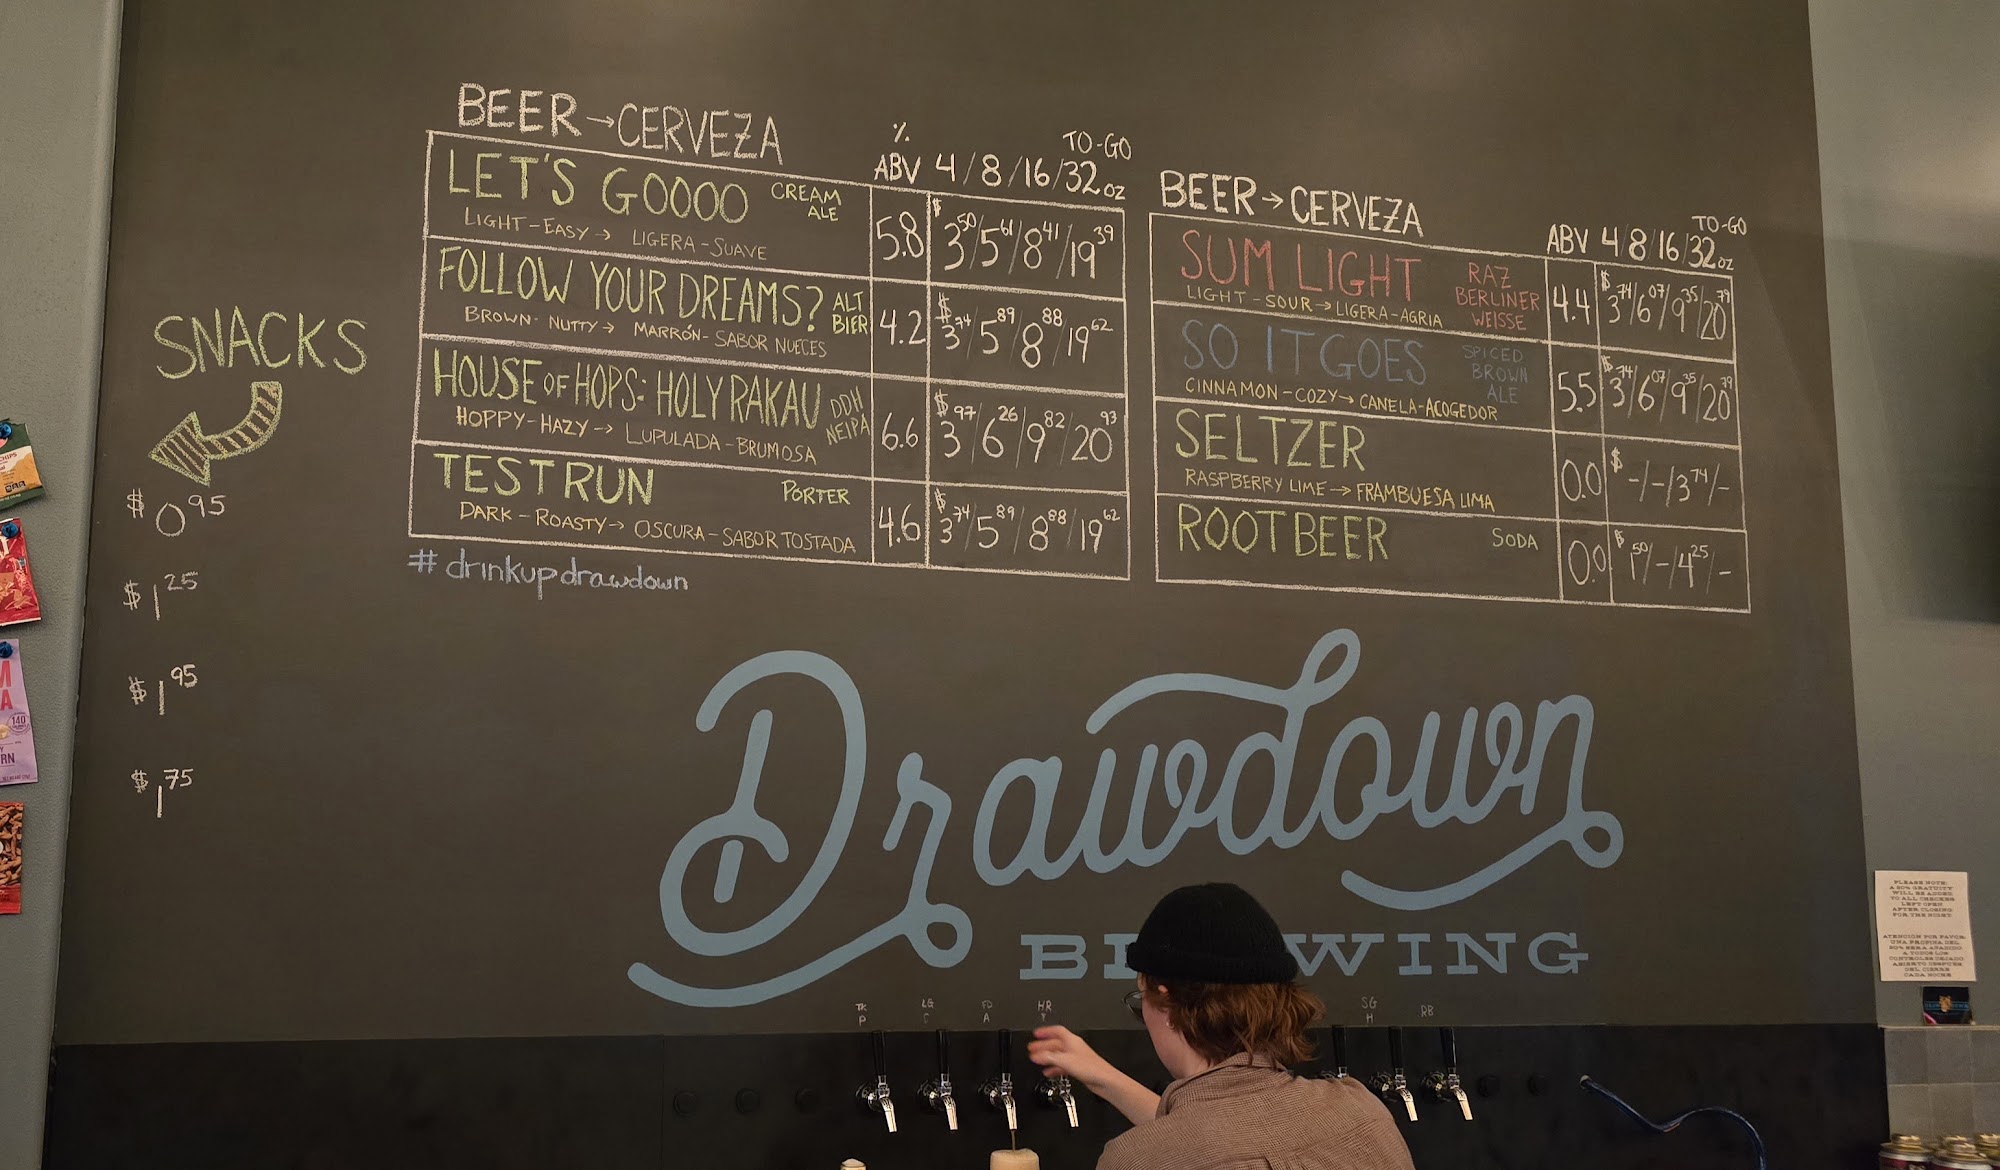 BEER → CERVEZA
% ABV 4/8/16/32 oz TO-GO
LET'S GOOOO CREAM ALE 5.8 $3.50/5.61/8.41/19.39
LIGHT-EASY → LIGERA-SUAVE
FOLLOW YOUR DREAMS? ALT BIER 4.2 $3.74/5.89/8.88/19.62
BROWN-NUTTY → MARRÓN-SABOR NUECES
HOUSE OF HOPS: HOLY RAKAU DDH NEIPA 6.6 $3.97/6.26/9.82/20.93
HOPPY-HAZY → LUPULADA-BRUMOSA
TEST RUN PORTER 4.6 $3.74/5.89/8.88/19.62
DARK-ROASTY → OSCURA-SABOR TOSTADA
#drinkupdrawdown
BEER → CERVEZA
ABV 4/8/16/32 oz TO-GO
SUM LIGHT RAZ BERLINER WEISSE 4.4 $3.74/6.07/9.35/20.79
LIGHT-SOUR → LIGERA-AGRIA
SO IT GOES SPICED BROWN ALE 5.5 $3.74/6.07/9.35/20.79
CINNAMON-COZY → CANELA-ACOGEDOR
SELTZER 0.0 $-/-/3.74/-
RASPBERRY LIME → FRAMBUESA LIMA
ROOT BEER SODA 0.0 $1.50/-/4.25/-
SNACKS
$0.95
$1.25
$1.95
$1.75
CHIPS
140
RN
Drawdown
BREWING
LG
FD
A
HR
SG
H
RB
PLEASE NOTE:
A 20% GRATUITY
WILL BE ADDED
TO ALL CHECKS
LEFT OPEN
AFTER CLOSING
FOR THE NIGHT.
ATENCIÓN POR FAVOR:
UNA PROPINA DEL
20% SERA AÑADIDO
A TODOS LOS